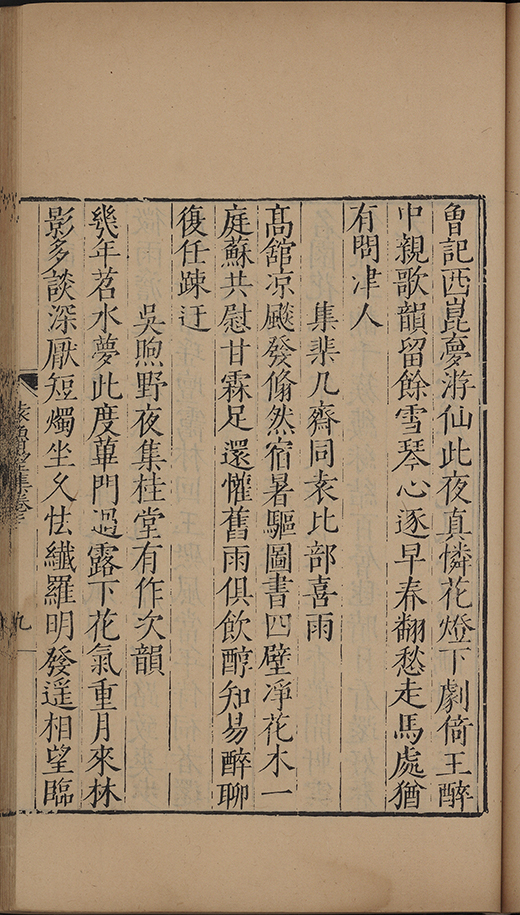 魯記西崑夢游仙此夜真憐花燈下劇倚玉醉
中親歌韻留餘雪琴心逐早春翻愁走馬處猶
有問津人
集棐几齋同袁比部喜雨
高舘凉飈發翛然宿暑驅圖書四壁凈花木一
庭蘇共慰甘霖足還懽舊雨俱飲醇知易醉聊
復任踈迂
吳煦野夜集桂堂有作次韻
幾年苕水夢此度蓽門過露下花氣重月來林
影多談深厭短燭坐久怯纎羅明發遥相望臨
袁魯望集卷
九